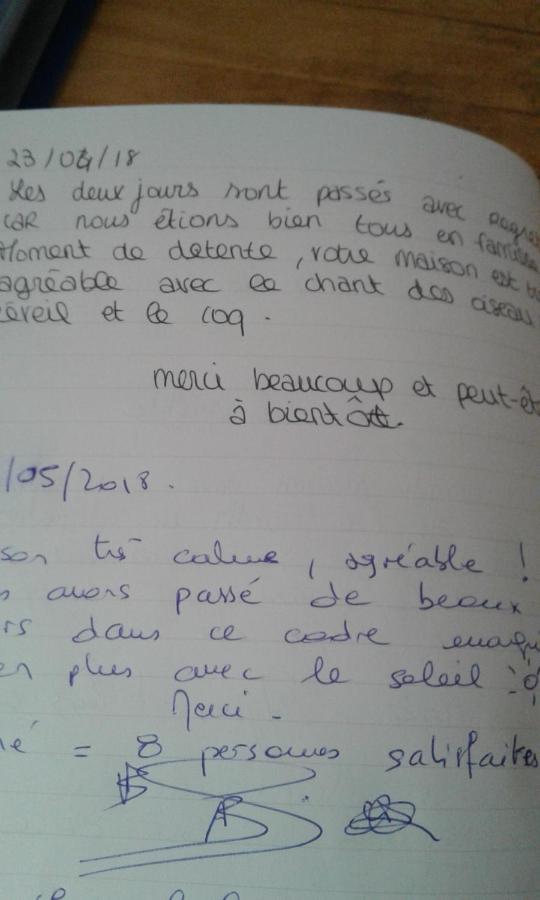 23/04/18
Les deux jours sont passés avec
CAR nous étions bien tous en famille
Moment de detente, votre maison est
agréable avec le chant des oiseau
éveil et le coq.
merci beaucoup et peut-êt
à bientôt.
/05/2018.
son très calme, agréable !
s avons passé de beaux
rs dans ce cadre
en plus avec le soleil
Merci -
é = 8 personnes satisfaites